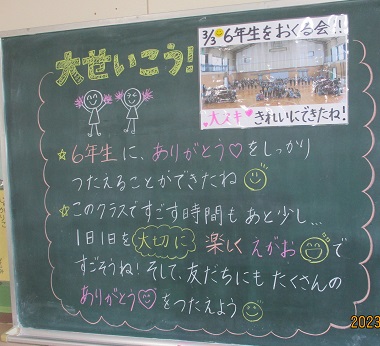 大せいこう!
3/3 6年生をおくる会!!
大メキ きれいにできたね!
☆6年生に、ありがとう♡をしっかり
つたえることができたね
☆このクラスですごす時間もあと少し…
1日1日を大切に 楽しく えがおで
すごそうね!そして、友だちにもたくさんの
ありがとう♡をつたえよう
2023